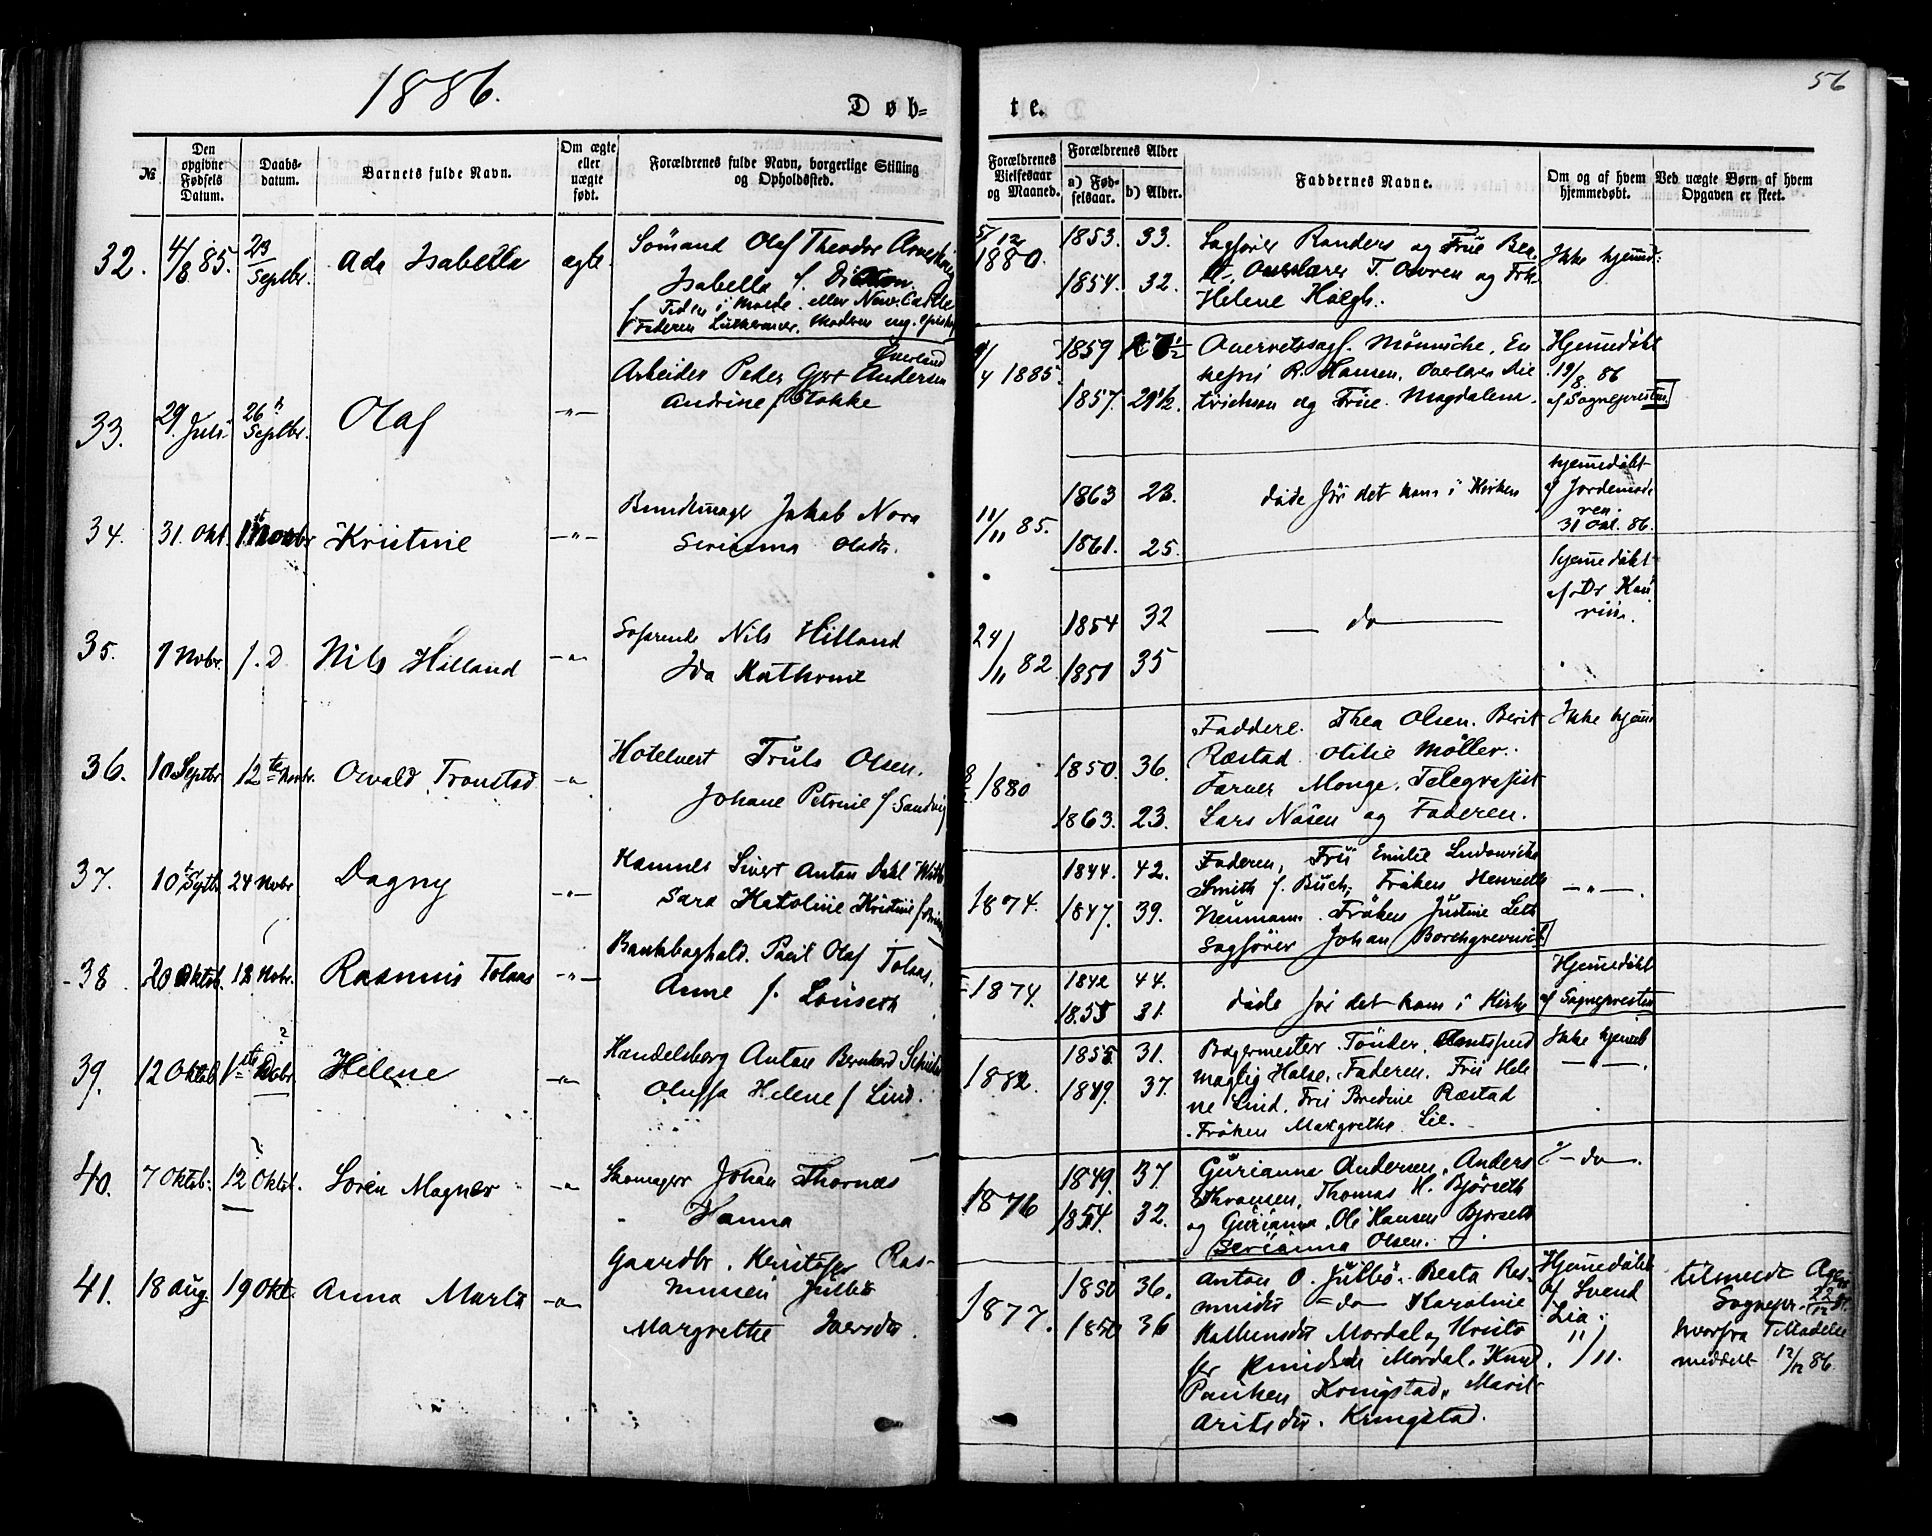 1886.
Døb=
te.
56
№
Den opgivne Fødsels Datum.
Daabs-datum.
Barnets fulde Navn.
Om ægte eller uægte født.
Forældrenes fulde Navn, borgerlige Stilling og Opholdssted.
Forældrenes Vielsesaar og Maaned.
Forældrenes Alder
a) Fødselsaar.
b) Alder.
Faddernes Navne.
Om og af hvem hjemmedøbt.
Ved uægte Børn af hvem Opgaven er skeet.
32. 4/8 85. 23 Septbr. Ada Isabella ægte
Sømand Olaf Theodor
Isabella f.
f. Faderen Lutheraner, Moderen
5/12 1880. 1853. 33.
1854. 32.
Sagfører Randers og Frue
Overlærer T. Owren og Frk.
Helene
Ikke hjemd:
33. 29. Juli 26 Septbr. Olaf —"—
Øverland
Arbeider Peder Gjert Andersen
Andrine f. Stokke
/4 1885 1859
1857. 29 1/2.
Overretssagf. Mönniche, En
kefru R. Hansen, Overlærer Die
trichson og Frue. Magdalena.
Hjemmedøbt
19/8. 86
af Sognepresten
34. 31. Okt. 1st Novbr Kristine —"—
Bundtmager Jakob Nora
Olsdtr.
11/11 85. 1863 23.
1861. 25.
døde før det kom i Kirken
hjemmedøbt
af Jordemode
ren.
31 Okt. 86.
35. 7 Novbr. s. D Nils Hilland —"—
Sofarende Nils Hilland
Ida Kathrine
24/11 82 1854 32
1851 35
— do —
hjemmedøbt
af Dr Kau
rin.
36. 10 Septbr 12te Novbr. Osvald Tronstad —"—
Hotelvert Truls Olsen.
Johane Petrine f. Sandvig
1880 1850. 36.
1863. 23.
Faddere. Thea Olsen. Berit
Ræstad. Otilie Møller.
Farver Monge, Telegrafist
Lars Näsen og Faderen.
Ikke hjem
37. 10 Septb. 24 Novbr Dagny —"—
Sivert Anton Dahl
Sara Katoline Kristine
1874. 1844. 42.
1847. 39.
Faderen, Fru Emilie Ludovicka
Smith f. Buch, Frøken Henriette
Neumann. Frøken Justine
Sagfører Johan Borchgrevinck
—"—.
38 20 Oktob. 18 Novbr. Rasmus Tolaas —"—
Bankboghold. Paul Olaf Tolaas.
Anne f.
1874. 1842 44.
1855 31.
døde før det kom i Kirke
Hjemmedøbt
af Sognepresten
39. 12 Oktob 1ste Helene —"—
Handelsborg Anton Bernhard
Oluffa Helene f Lind.
1882. 1855 31.
1849. 37.
Bagermester Tönder, Amtsfuld
mægtig Halse, Faderen. Fru Hele
ne Lind, Fru Bredine Ræstad
Frøken Margrethe Lie.
Ikke hjemd
—"—.
40. 7 Oktob. 12 Oktob. Soren Magner —"—
Skomager Johan Thornæs
Hanna
1876 1849. 37.
1854. 32.
Gurianna Andersen, Anders
Thomas H. Björseth
og Gurianna. Ole Hansen Bjørseth
Serianna Olsen.
— do —.
41. 18 Aug 19 Okt. Anna Marta —"—
Gaardbr. Kristofer Ras-
mussen Julbø
Margrethe Iversdtr.
1877. 1850 36.
1850 36
Anton O. Julbø. Beata Ras-
—do— Karoline
Mordal og Kristo
fer Knudsen Mordal. Knud
Kringstad, Marit
Kringstad.
Hjemmedøbt
af Svend
Lia.
11/11.
tilmeldt
Sognepr. 22/12
hvorfra
meddelt 12/12 86.